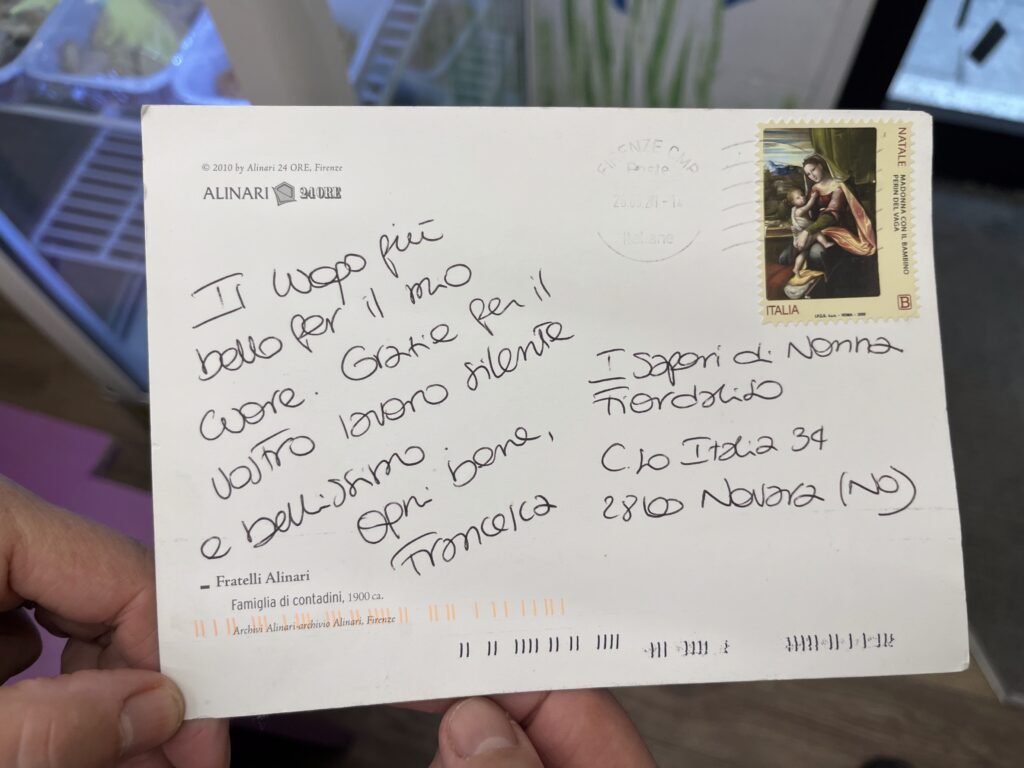 © 2010 by Alinari 24 ORE, Firenze
ALINARI 24 ORE
FIRENZE CMP
Poste
Italiane
NATALE
MADONNA CON IL BAMBINO
PERIN DEL VAGA
ITALIA
I.P.Z.S. S.p.A. - ROMA - 2020
B
Il luogo più
bello per il mio
cuore. Grazie per il
vostro lavoro silente
e bellissimo
Ogni bene,
Francesca
I Sapori di Nonna
Fiordaliso
C.so Italia 34
28100 Novara (NO)
Fratelli Alinari
Famiglia di contadini, 1900 ca.
Archivi Alinari-archivio Alinari, Firenze